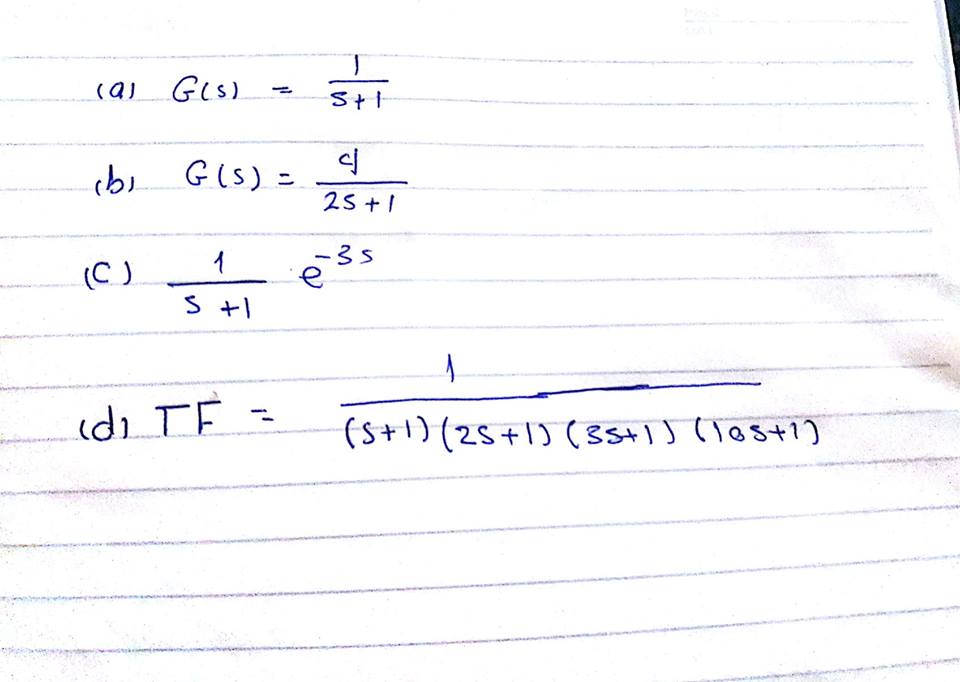 (a) G(s) = 1/(s+1)
(b) G(s) = 9/(2s+1)
(c) 1/(s+1) e^-3s
(d) TF = 1/((s+1)(2s+1)(3s+1)(10s+1))